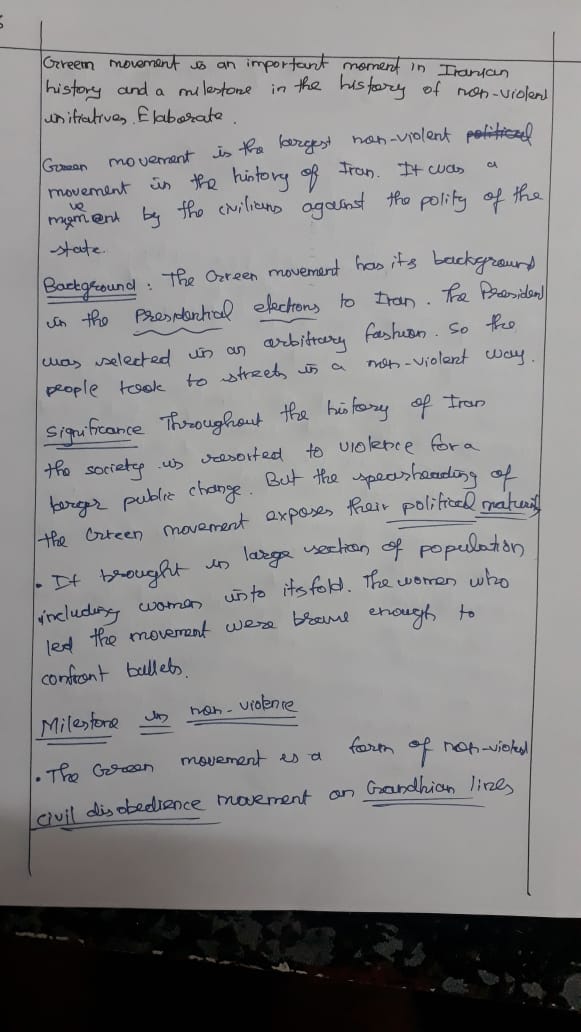 Green movement is an important moment in Iranian
history and a milestone in the history of non-violent
initiatives. Elaborate.
Green movement is the largest non-violent political
movement in the history of Iran. It was a
movement by the civilians against the polity of the
state.
Background : The Green movement has its background
in the Presidential elections to Iran. The President
was selected in an arbitrary fashion. So the
people took to streets in a non-violent way.
Significance Throughout the history of Iran
the society is resorted to violence for a
larger public change. But the spearheading of
the Green movement exposes their political maturity
• It brought in large section of population
including women into its fold. The women who
led the movement were brave enough to
confront bullets.
Milestone in non-violence
• The Green movement is a form of non-violent
civil disobedience movement on Gandhian lines